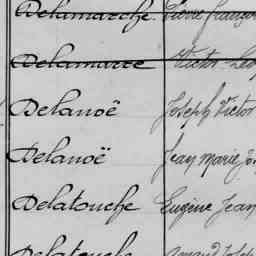 Delamarche Pierre François
Delamarre Victor Léo
Delanoë Joseph Victor
Delanoë Jean Marie
Delatouche Eugène Jean
Delatouche Armand Joseph